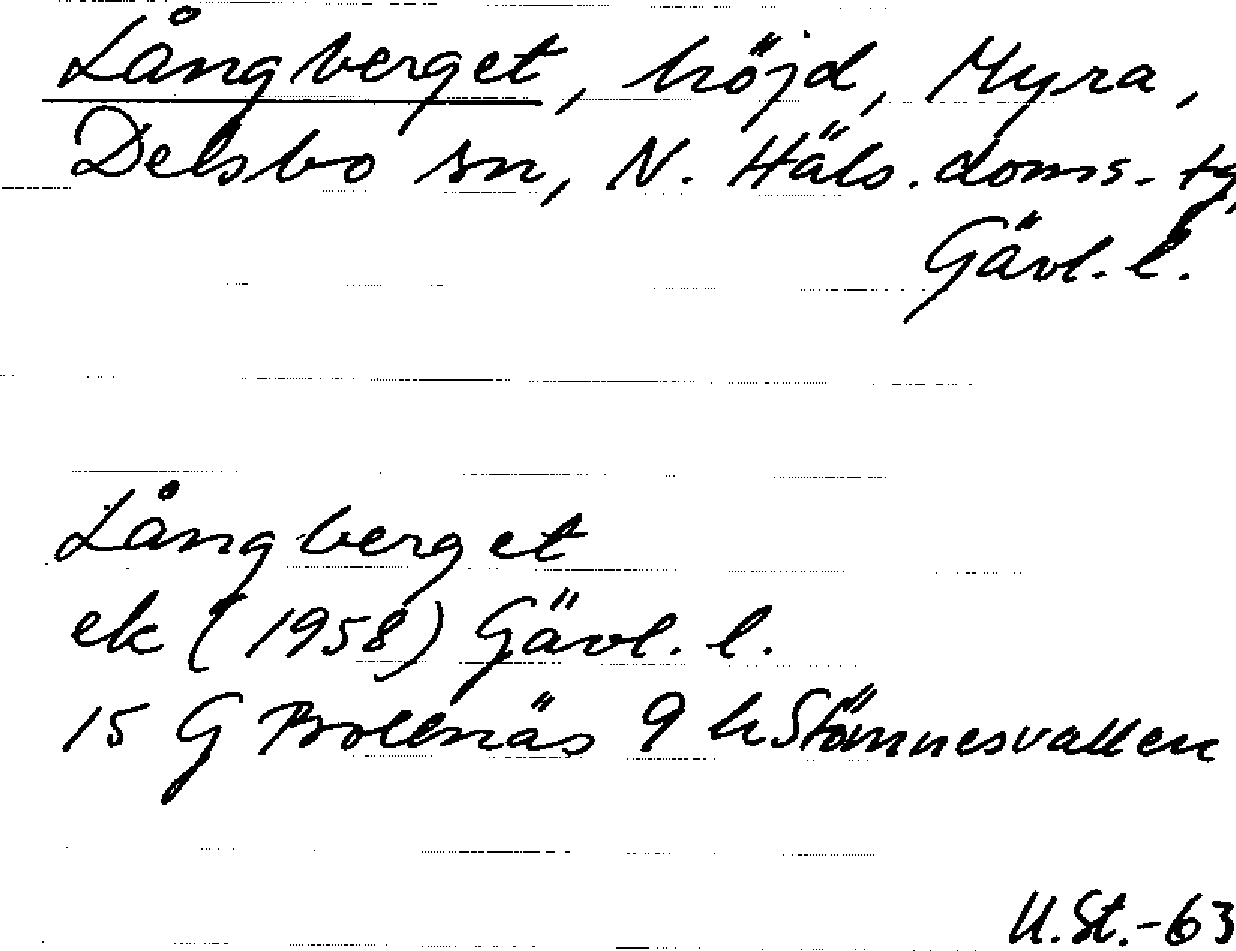 Långberget, höjd, Myra,
Delsbo sn, N. Häls. doms. tg,
Gävl. l.
Långberget
ek (1958) Gävl. l.
15 G Bollnäs 9 h Stömnesvallen
U.St.-63